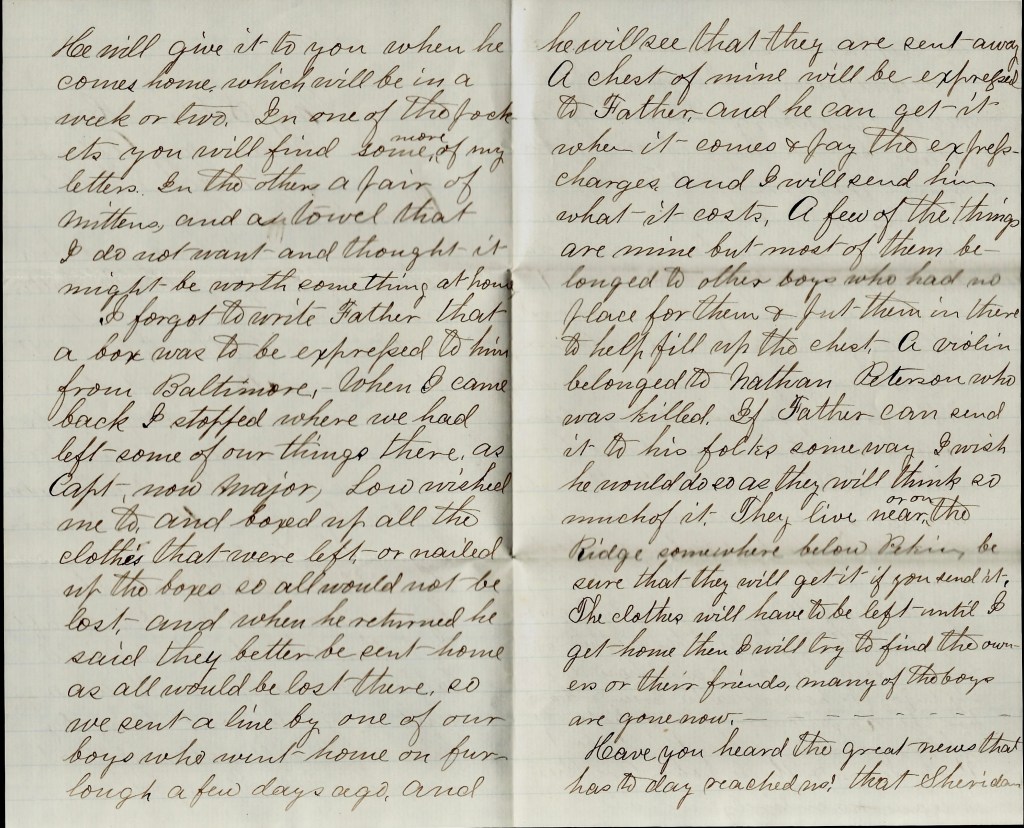 He will give it to you when he
comes home, which will be in a
week or two. In one of the pock
ets you will find some, more of my
letters. In the others a pair of
mittens, and a towel that
I do not want and thought it
might be worth something at home
I forgot to write Father that
a box was to be expressed to him
from Baltimore,- When I came
back I stopped where we had
left some of our things there, as
Capt, now Major, Low wished
me to, and boxed up all the
clothes that were left or nailed
up the boxes so all would not be
lost, and when he returned he
said they better be sent home
as all would be lost there, so
we sent a line by one of our
boys who went home on fur-
lough a few days ago, and
he will see that they are sent away
A chest of mine will be expressed
to Father and he can get it
when it comes & pay the express-
charges, and I will send him
what it costs, A few of the things
are mine but most of them be-
longed to other boys who had no
place for them & put them in there
to help fill up the chest. A violin
belonged to Nathan Peterson who
was killed. If Father can send
it to his folks some way I wish
he would do so as they will think so
much of it. They live near, or on the
Ridge somewhere below Pekin, be
sure that they will get it if you send it.
The clothes will have to be left until I
get home then I will try to find the own-
ers or their friends, many of the boys
are gone now. - - - - - - - -
Have you heard the great news that
has to day reached us! that Sheridan